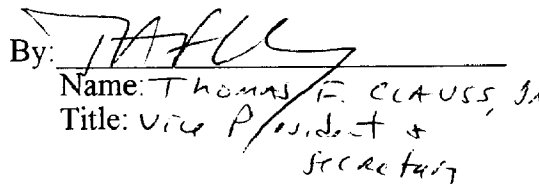 By:
Name: Thomas F. Clauss, Jr
Title: Vice President &
Secretary